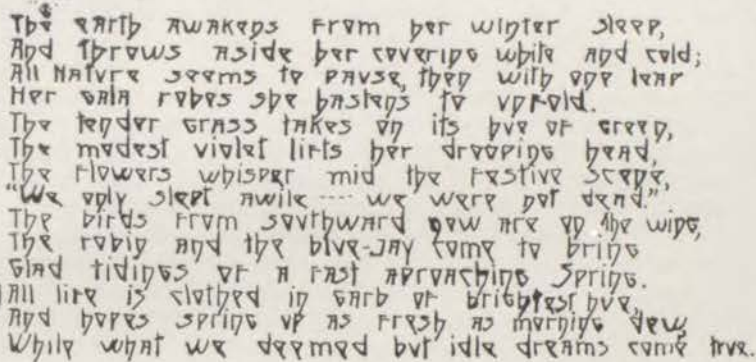 The earth awakens from her winter sleep,
And throws aside her covering white and cold;
All Nature seems to pause, then with one leap
Her gala robes she hastens to unfold.
The tender grass takes on its hue of green,
The modest violet lifts her drooping head,
The flowers whisper mid the festive scene,
"We only slept awile---- we were not dead."
The birds from southward now are on the wing,
The robin and the blue-jay come to bring
Glad tidings of a fast aproaching Spring.
All life is clothed in garb of brightest hue,
And hopes spring up as fresh as morning dew,
While what we deemed but idle dreams come true